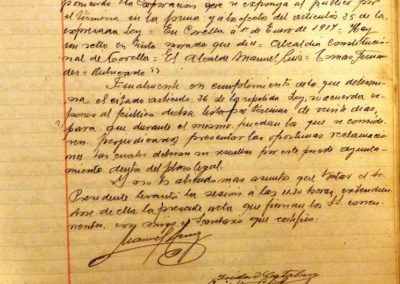 poniendo la Corporación que se exponga al público por
el término en la forma y a los efectos del artículo 25 de la
expresada Ley = En Corella a 1º de Enero de 1914 = Hay
un sello en tinta morada que dice = Alcaldía constitucio
nal de Corella = El Alcalde Manuel Ruiz =
= Rubricado
Finalmente en cumplimiento de lo que determi
na el citado artículo 26 de la repetida Ley, se acuerda ex
poner al público dicha lista por término de veinte días,
para que durante el mismo puedan los que se conside
ren perjudicados presentar las oportunas reclamacio
nes las cuales deberán ser resueltas por este ayunta
miento dentro del plazo legal.
Y no habiendo mas asuntos que tratar el Sr.
Presidente levantó la sesión a las 11.30 horas, extendien
dose de ella la presente acta que firman los Sres. concu
rrentes, con migo el Secretario que certifico.
Manuel Ruiz